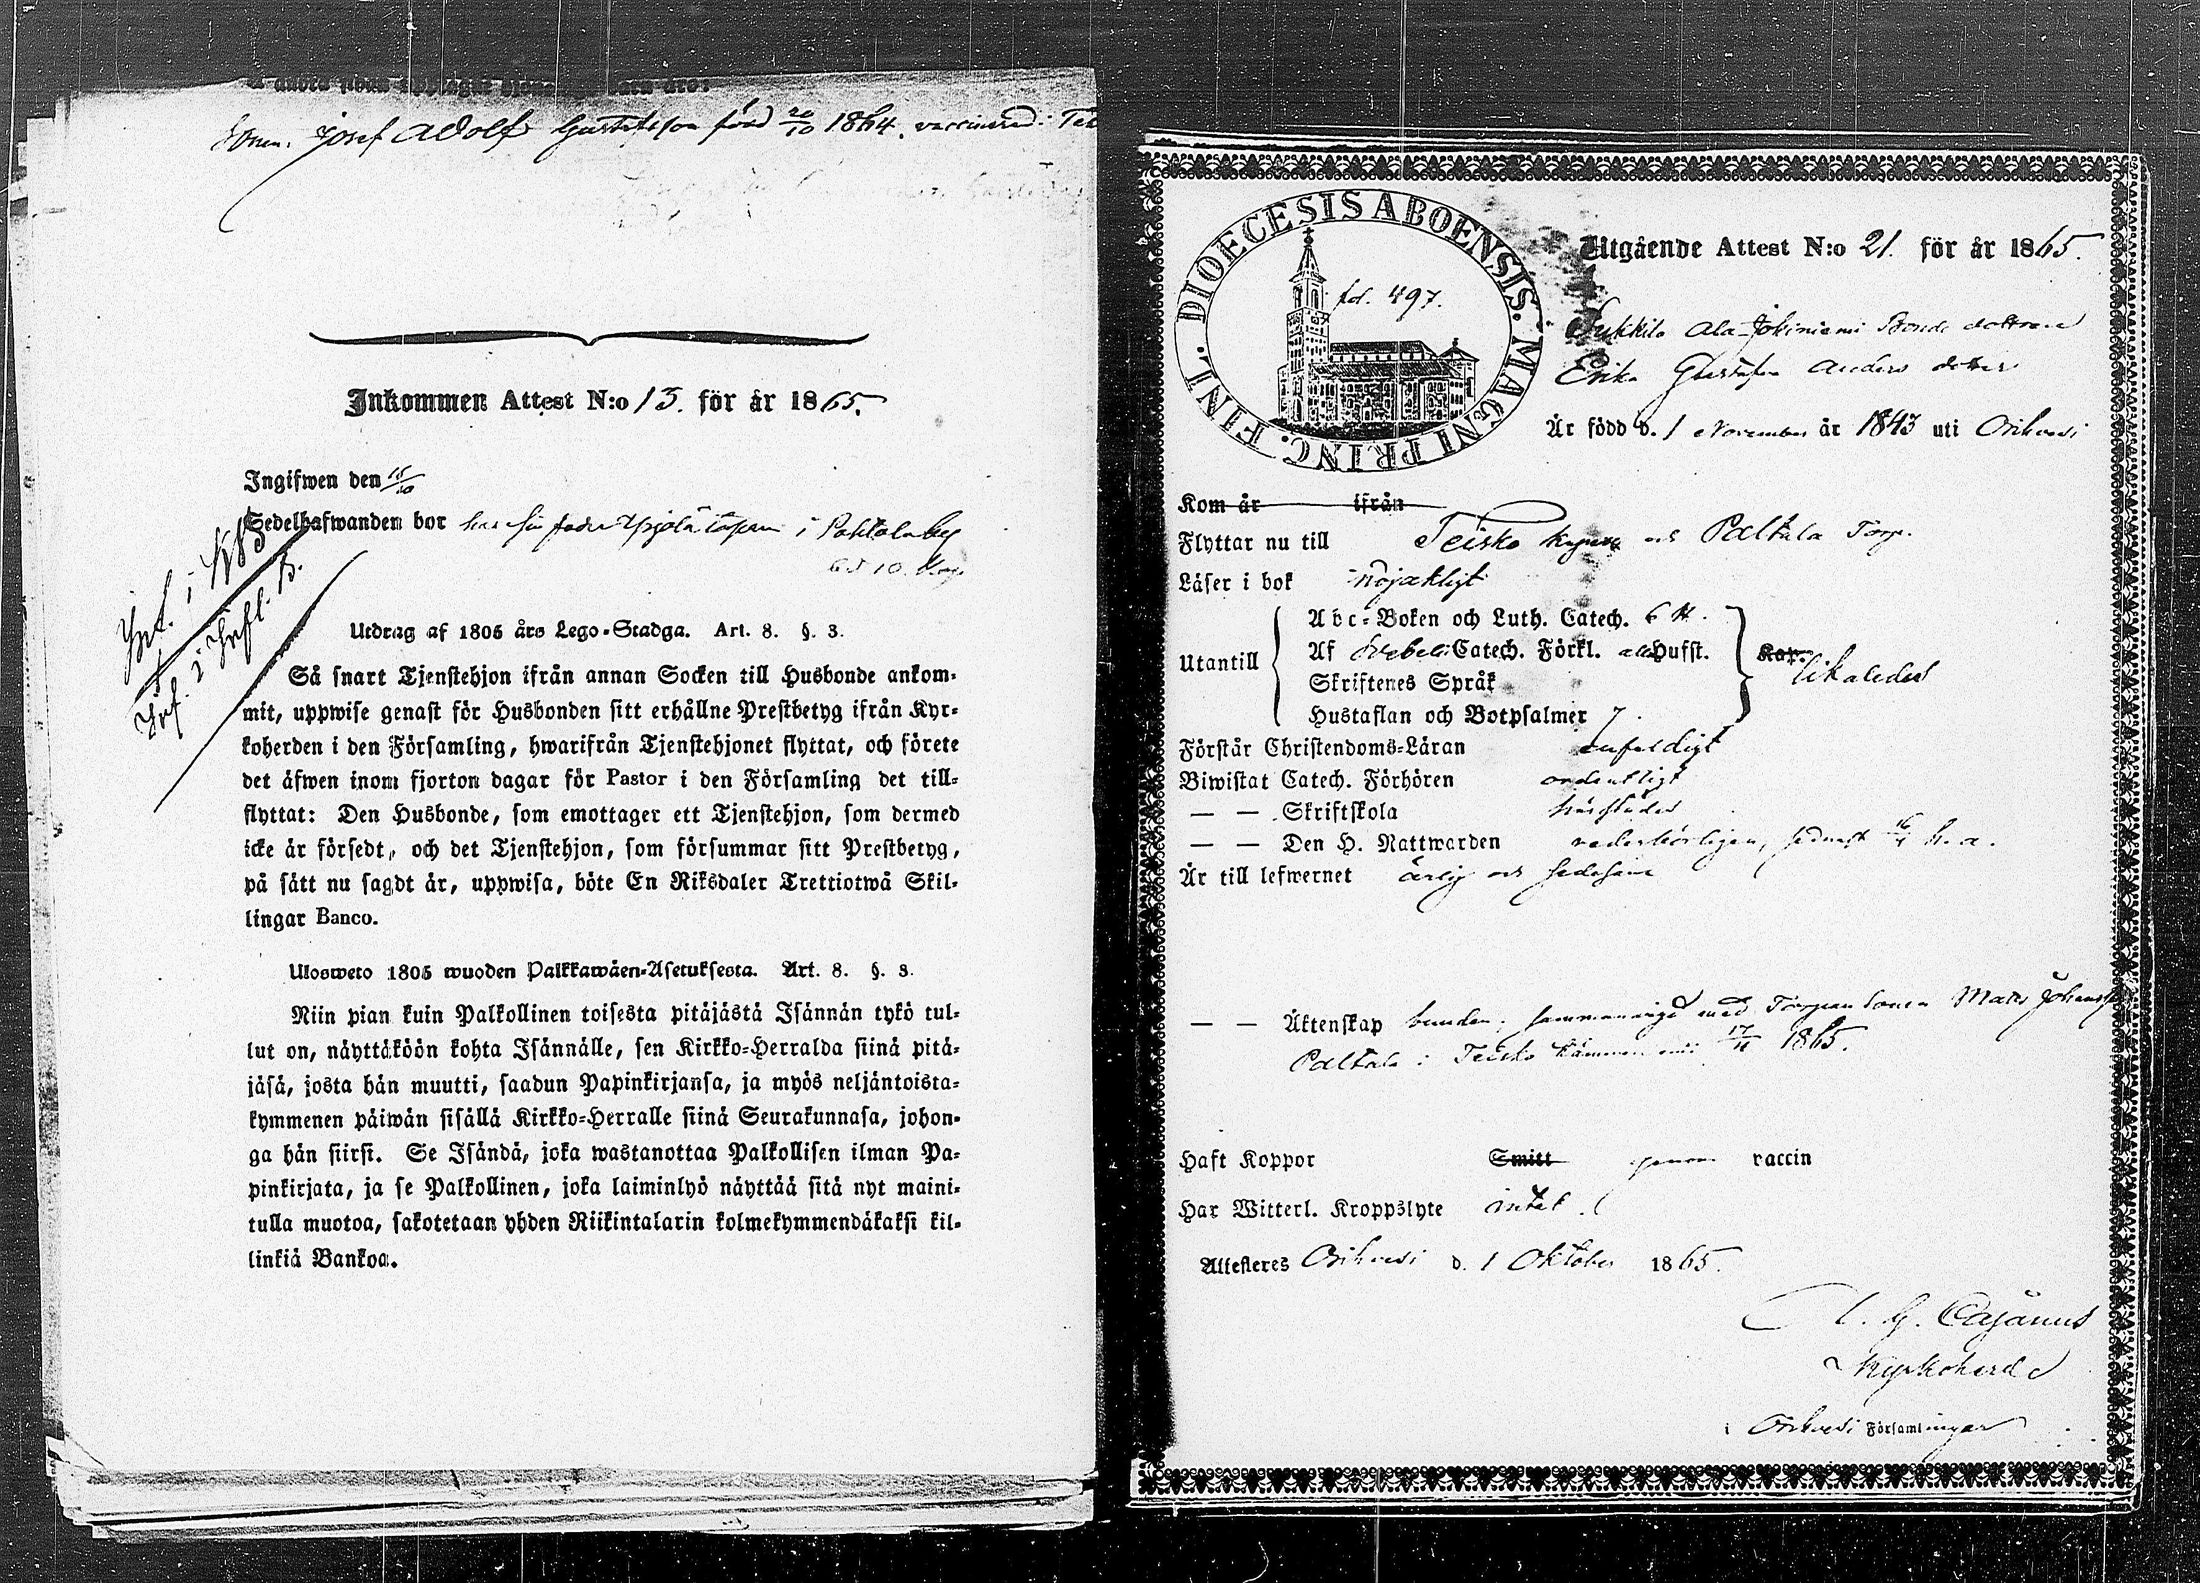 Sonen. Josef Adolf Gustafsson född 20/10 1864. vaccinerad i
Inkommen Attest N:o 13. för år 1865.
Ingifwen den
Sedelhafwanden bor hos sin fader i
Inf. i
Inf. i
Utdrag af 1805 års Lego-Stadga. Art. 8. §. 3.
Så snart Tjenstehjon ifrån annan Socken till Husbonde ankom-
mit, uppwise genast för Husbonden sitt erhållne Prestbetyg ifrån Kyr-
koherden i den Församling, hwarifrån Tjenstehjonet flyttat, och förete
det äfwen inom fjorton dagar för Pastor i den Församling det till-
flyttat: Den Husbonde, som emottager ett Tjenstehjon, som dermed
icke är försedt, och det Tjenstehjon, som försummar sitt Prestbetyg,
på sätt nu sagdt är, uppwisa, böte En Riksdaler Trettiotwå Skil-
lingar Banco.
Ulosweto 1805 wuoden Palkkawäen-Asetuksesta. Art. 8. §. 3.
Niin pian kuin Palkollinen toisesta pitäjästä Isännän tykö tul-
lut on, näyttäköön kohta Isännälle, sen Kirkko-Herralda siinä pitä-
jäsä, josta hän muutti, saadun Papinkirjansa, ja myös neljäntoista-
kymmenen päiwän sisällä Kirkko-Herralle siinä Seurakunnasa, johon-
ga hän siirsi. Se Isändä, joka wastanottaa Palkollisen ilman Pa-
pinkirjata, ja se Palkollinen, joka laiminlyö näyttää sitä nyt maini-
tulla muotoa, sakotetaan yhden Riikintalarin kolmekymmendäkaksi kil-
linkiä Bankoa.
DIOECESIS ABOENSIS. MAGNI PRINC. FINL.
fol. 497.
Utgående Attest N:o 21. för år 1865.
Ala-Jokiniemi Bonde dottren
Erika Gustafva Anders dotter
Är född d. 1 November år 1843 uti Orihvesi
Kom år ifrån
Flyttar nu till Teisko och Paltala Torp.
Läser i bok nöjaktligt
Utantill
Abc-Boken och Luth. Catech. 6 H.
Af Svebelii Catech. Förkl. alla Husft.
Skriftenes Språk
Hustaflan och Botpsalmer 7.
Kap. likaledes
Förstår Christendoms-Läran enfaldigt
Biwistat Catech. Förhören ordentligt
— — Skriftskola härstädes
— — Den H. Nattwarden vederbörligen, sednast h. a.
Är till lefwernet ärlig och sedesam
— — Äktenskap bunden, sammanvigd med Torpare Sonen Matts Johansson
Paltala i Teisko 1865.
Haft Koppor Smitt genom vaccin
Har Witterl. Kroppslyte intet.
Attesteres Orihvesi d. 1 Oktober 1865.
G. Cajanus
Kyrkoherde
i Orihvesi Församlingar